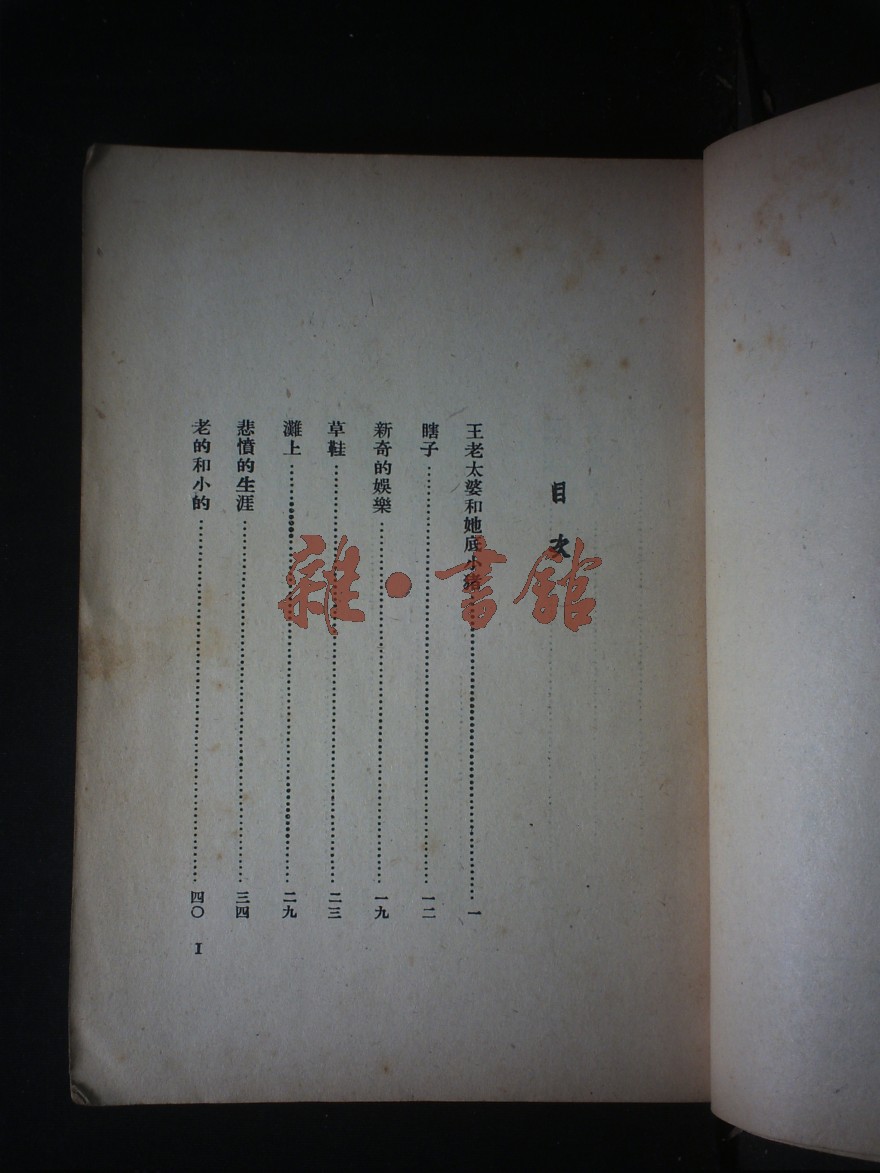 目次
王老太婆和她底小猪……一
瞎子……一二
新奇的娛樂……一九
草鞋……二三
灘上……二九
悲憤的生涯……三四
老的和小的……四〇
I
雜·書館